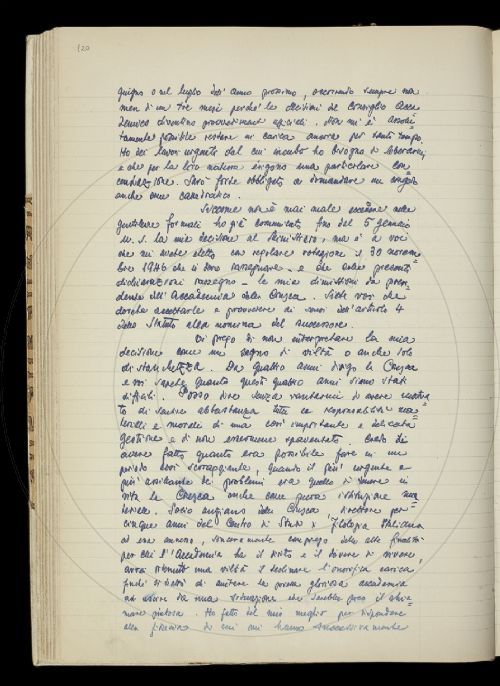 120
giugno o nel luglio dell'anno prossimo, occorrendo sempre non
meno di un tre mesi perché le decisioni del Consiglio Acca=
demico diventino provvedimenti ufficiali. Non mi è assolu=
tamente possibile restare in carica ancora per tanto tempo.
Ho dei lavori urgenti del cui mento ho bisogno di liberarmi
e che per la loro natura esigono una particolare con=
centrazione. Sarò forse obbligato a domandare un congedo
anche come cattedratico.
Siccome non è mai male eccedere nelle
gentilezze formali ho già comunicato fino dal 5 gennaio
u. s. la mia decisione al Ministero: ma è a voi
che mi avete eletto con regolare votazione il 30 novem
bre 1946 che io devo rassegnare - e che colle presenti
dichiarazioni rassegno - le mie dimissioni da presi=
dente dell'Accademia della Crusca. Siete voi che
dovete accettarle e provvedere ai sensi dell'articolo 4
dello Statuto alla nomina del successore.
Vi prego di non interpretare la mia
decisione come un segno di viltà o anche solo
di stanchezza. Da quattro anni dirigo la Crusca
e voi sapete quanto questi quattro anni siano stati
difficili. Posso dire senza vantarmi di avere
di sentire abbastanza tutte le responsabilità ma=
teriali e morali di una così importante e delicata
gestione e di non essermene spaventato. Credo di
avere fatto quanto era possibile fare in un
periodo così scoraggiante, quando il più urgente e
più assillante dei problemi era quello di tenere in
vita la Crusca anche come pura istituzione
Socio anziano della Crusca, direttore per
cinque anni del Centro di Studi x Filologia Italiana
ad essa annesso, sinceramente compreso delle alte finalità
per cui l'Accademia ha il diritto e il dovere di vivere
avrei ritenuto una viltà il declinare l'onorifica carica,
finché si trattò di aiutare la nostra gloriosa accademia
ad uscire da una situazione che sarebbe poco il chia=
mare penosa. Ho fatto del mio meglio per rispondere
alla fiducia di cui mi hanno successivamente